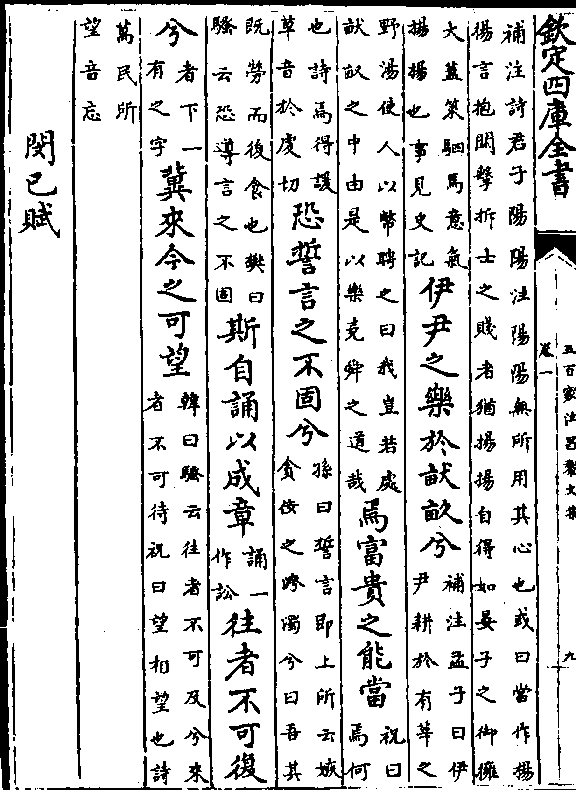 欽定四庫全書
五百家注昌黎文集
卷一
九
補注詩君子陽陽注陽陽無所用其心也或曰當作揚
揚言抱關擊柝士之賤者猶揚揚自得如晏子之御擁
大葢策駟馬意氣
揚揚也事見史記
伊尹之樂於畎畝兮
補注孟子曰伊
尹耕於有莘之
野湯使人以幣聘之曰我豈若處
畎畝之中由是以樂堯舜之道哉
焉富貴之能當
祝曰
焉何
也詩焉得諼
草音於虔切
恐誓言之不固兮
孫曰誓言即上所云嫉
貪佞之洿濁兮曰吾其
既勞而後食也樊曰
騷云恐導言之不固
斯自誦以成章
誦一
作訟
往者不可復
兮
者下一
有之字
冀來今之可望
韓曰騷云往者不可及兮來
者不可待祝曰望相望也詩
萬民所
望音忘
閔已賦